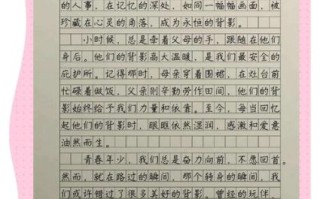 的人事，在记忆的深处，如同一幅幅画面，被
珍藏在心灵的角落，成为永恒的背影。
小时候，总是牵着父母的手，跟随在他们
身后。他们的背影高大温暖，是我们最安全的
庇护所。记得那时，母亲穿着围裙，在灶台前
忙碌着做饭，父亲则辛勤劳作田间，他们的背
影始终给予我们力量和依靠。至今，每当回忆
起他们的背影时，眼眶依然湿润，感激和爱意
油然而生。
青春年少，我们总是奋力向前，不愿回首。
然而，就在路过的瞬间，那个转身的瞬间，我
们或许错过了很多美好的背影。曾经的玩伴，